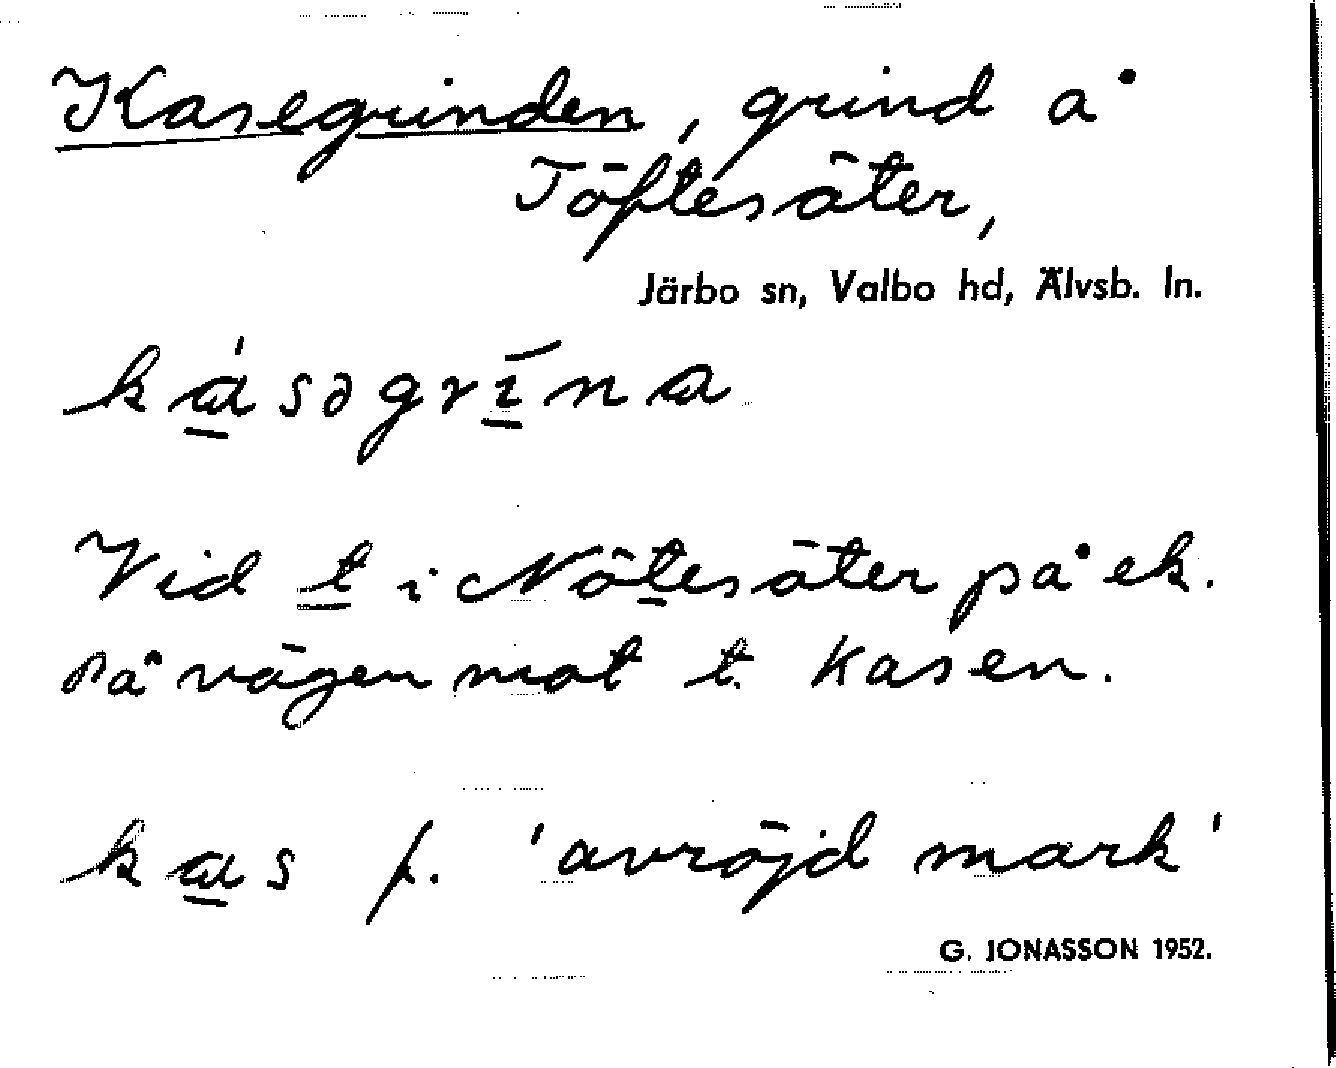 Kasegrinden, grind å
Töftesäter,
Järbo sn, Valbo hd, Älvsb. ln.
ká̱səgri̱na
Vid t i Nötesäter på ek.
På vägen mot t. Kasen.
ka̱s f. 'avröjd mark'
G. JONASSON 1952.